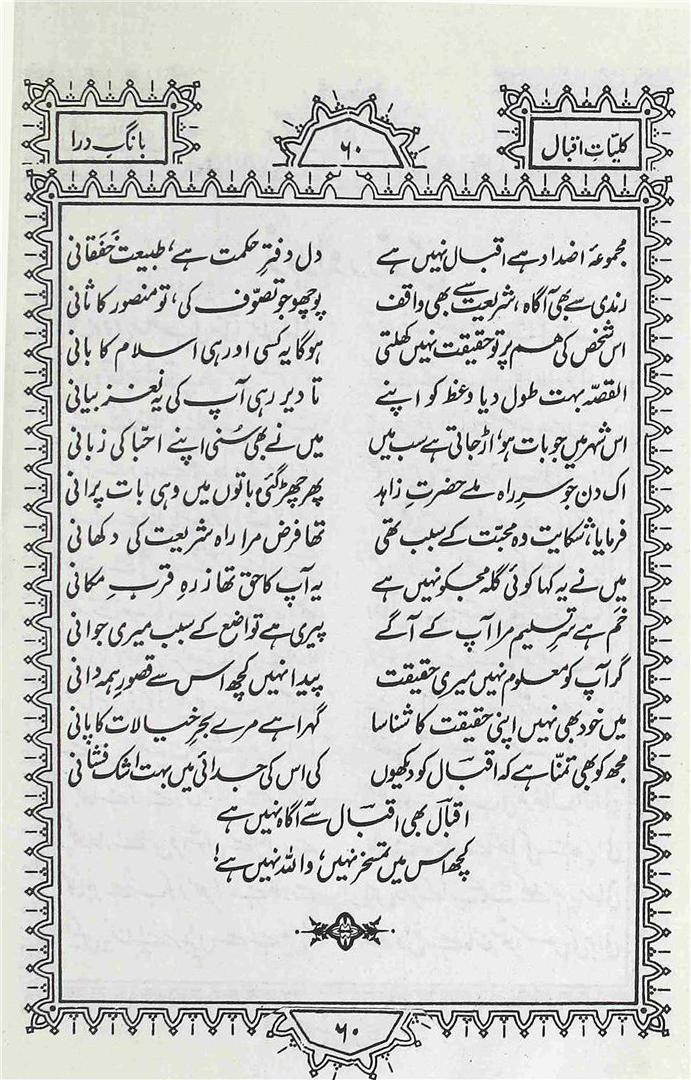 کلیّاتِ اقبال
۶۰
بانگِ درا
مجموعۂ اضداد ہے اقبال نہیں ہے دل دفترِ حکمت ہے، طبیعت خفَقانی
رندی سے بھی آگاہ، شریعت سے بھی واقف پوچھو جو تصوّف کی، تو منصور کا ثانی
اس شخص کی ہم پر تو حقیقت نہیں کھلتی ہوگا یہ کسی اور ہی اسلام کا بانی
القصّہ بہت طول دیا وعظ کو اپنے تا دیر رہی آپ کی یہ نغز بیانی
اس شہر میں جو بات ہو، اڑ جاتی ہے سب میں میں نے بھی سُنی اپنے احبّا کی زبانی
اک دن جو سرِ راہ ملے حضرتِ زاہد پھر چھڑ گئی باتوں میں وہی بات پرانی
فرمایا، شکایت وہ محبّت کے سبب تھی تھا فرض مرا راہ شریعت کی دکھانی
میں نے یہ کہا کوئی گلہ مجھ کو نہیں ہے یہ آپ کا حق تھا ز رہِ قربِ مکانی
خَم ہے سرِ تسلیم مرا آپ کے آگے پیری ہے تواضع کے سبب میری جوانی
گر آپ کو معلوم نہیں میری حقیقت پیدا نہیں کچھ اس سے قصورِ ہمہ دانی
میں خود بھی نہیں اپنی حقیقت کا شناسا گہرا ہے مرے بحرِ خیالات کا پانی
مجھ کو بھی تمنّا ہے کہ اقبال کو دیکھوں کی اس کی جدائی میں بہت اشک فشانی
اقبالؔ بھی اقبال سے آگاہ نہیں ہے
کچھ اس میں تمسخر نہیں، واللہ نہیں ہے!
۶۰